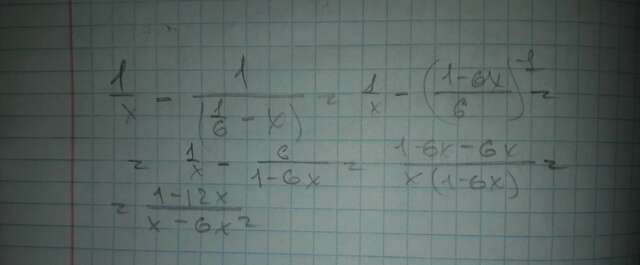 1/x - 1/(1/6 - x) = 1/x - ((1-6x)/6)^-1 =
= 1/x - 6/(1-6x) = (1-6x-6x)/(x(1-6x)) =
= (1-12x)/(x-6x²)